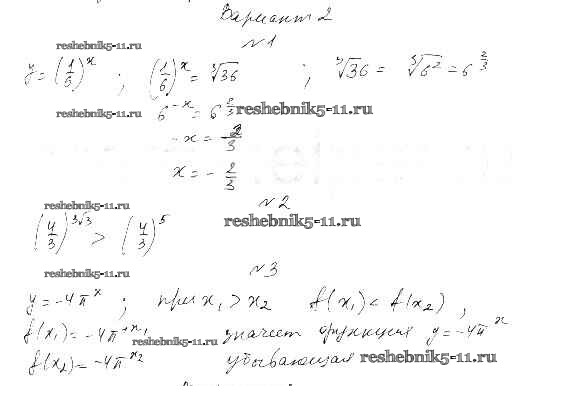 Вариант 2
№1
reshebnik5-11.ru
y = (1/5)^x ; (1/6)^x = ∛36 ; ∛36 = ∛6² = 6^(2/3)
reshebnik5-11.ru
6^(-x) = 6^(2/3) reshebnik5-11.ru
-x = 2/3
x = - 2/3
reshebnik5-11.ru
№2
(4/3)^(3√3) > (4/3)^5 reshebnik5-11.ru
№3
reshebnik5-11.ru
y = -4π^x ; при x₁ > x₂ f(x₁) < f(x₂) ,
f(x₁) = -4π^(x₁) reshebnik5-11.ru значит функция y = -4π^x
f(x₂) = -4π^(x₂) убывающая reshebnik5-11.ru